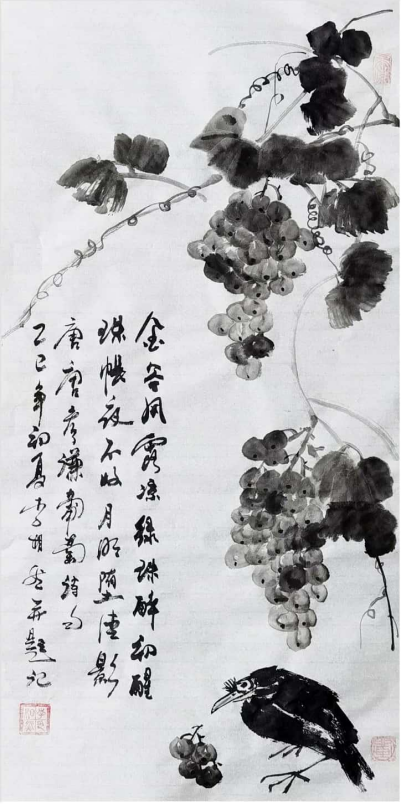 金谷风露凉绿珠醉初醒
珠帳夜不收月明堕清影
唐唐彦谦葡萄诗句
乙巳年初夏李并题记